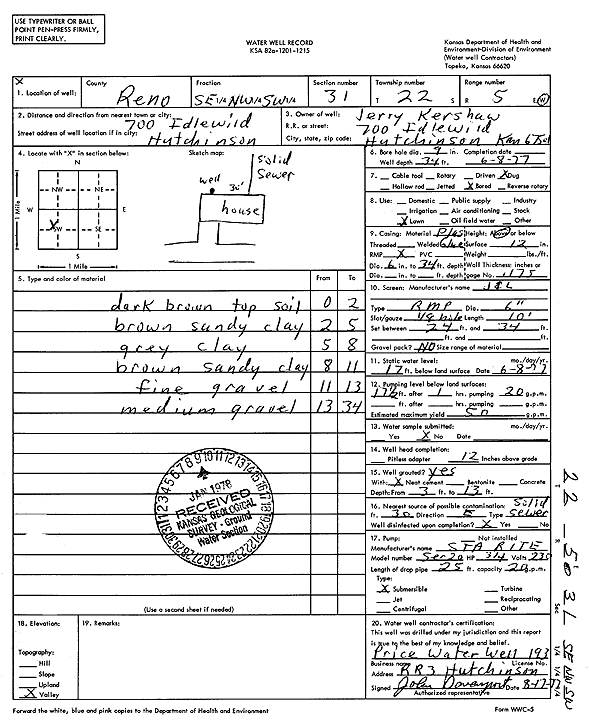 USE TYPEWRITER OR BALL
POINT PEN-PRESS FIRMLY,
PRINT CLEARLY.
WATER WELL RECORD
KSA 82a-1201-1215
Kansas Department of Health and
Environment-Division of Environment
(Water well Contractors)
Topeka, Kansas 66620
1. Location of well:
County
Reno
Fraction
SE¼NW¼SW¼
Section number
31
Township number
T 22 S
Range number
R 5 E(W)
2. Distance and direction from nearest town or city:
700 Idlewild
Street address of well location if in city:
Hutchinson
3. Owner of well: Jerry Kershaw
R.R. or street: 700 Idlewild
City, state, zip code: Hutchinson Kan
4. Locate with "X" in section below:
Sketch map:
N
NW NE
W E
SW SE
S
1 Mile
1 Mile
Solid
Sewer
well 30'
house
5. Type and color of material
From To
dark brown top soil 0 2
brown sandy clay 2 5
grey clay 5 8
brown sandy clay 8 11
fine gravel 11 13
medium gravel 13 34
(Use a second sheet if needed)
JAN 1978
RECEIVED
KANSAS GEOLOGICAL
SURVEY - Ground
Water Section
6. Bore hole dia. 9 in. Completion date
Well depth 34 ft. 6-8-77
7. Cable tool Rotary Driven X Dug
Hollow rod Jetted X Bored Reverse rotary
8. Use: Domestic Public supply Industry
Irrigation Air conditioning Stock
X Lawn Oil field water Other
9. Casing: Material Plas Height: Above or below
Threaded Welded Glue Surface 12 in.
RMP X PVC Weight lbs./ft.
Dia. 6 in. to 34 ft. depth Wall Thickness: inches or
Dia. in. to ft. depth gage No. .175
10. Screen: Manufacturer's name
Type RMP Dia. 6"
Slot/gauze 1/8 hole Length 10'
Set between 24 ft. and 34 ft.
ft. and ft.
Gravel pack? NO Size range of material
11. Static water level: mo./day/yr.
17 ft. below land surface Date 6-8-77
12. Pumping level below land surfaces:
17½ ft. after 1 hrs. pumping 20 g.p.m.
ft. after hrs. pumping g.p.m.
Estimated maximum yield 50 g.p.m.
13. Water sample submitted: mo./day/yr.
Yes X No Date
14. Well head completion:
Pitless adapter 12 Inches above grade
15. Well grouted? yes
With: X Neat cement Bentonite Concrete
Depth: From 3 ft. to 13 ft.
16. Nearest source of possible contamination: Solid
ft. 30 Direction S Type Sewer
Well disinfected upon completion? X Yes No
17. Pump: Not installed
Manufacturer's name STA RITE
Model number HP 3/4 Volts 230
Length of drop pipe 25 ft. capacity 20 g.p.m.
Type:
X Submersible Turbine
Jet Reciprocating
Centrifugal Other
18. Elevation:
19. Remarks:
Topography:
Hill
Slope
Upland
X Valley
20. Water well contractor's certification:
This well was drilled under my jurisdiction and this report
is true to the best of my knowledge and belief.
Price Water Well 193
Business name License No.
Address RR3 Hutchinson
Signed John Davenport Date 8-17-77
Authorized representative
22 - 5W 31 SE NW SW
Forward the white, blue and pink copies to the Department of Health and Environment
Form WWC-5